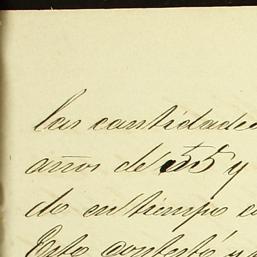 las cantidades
años de 55 y
do en tiempo
Esto contestó y